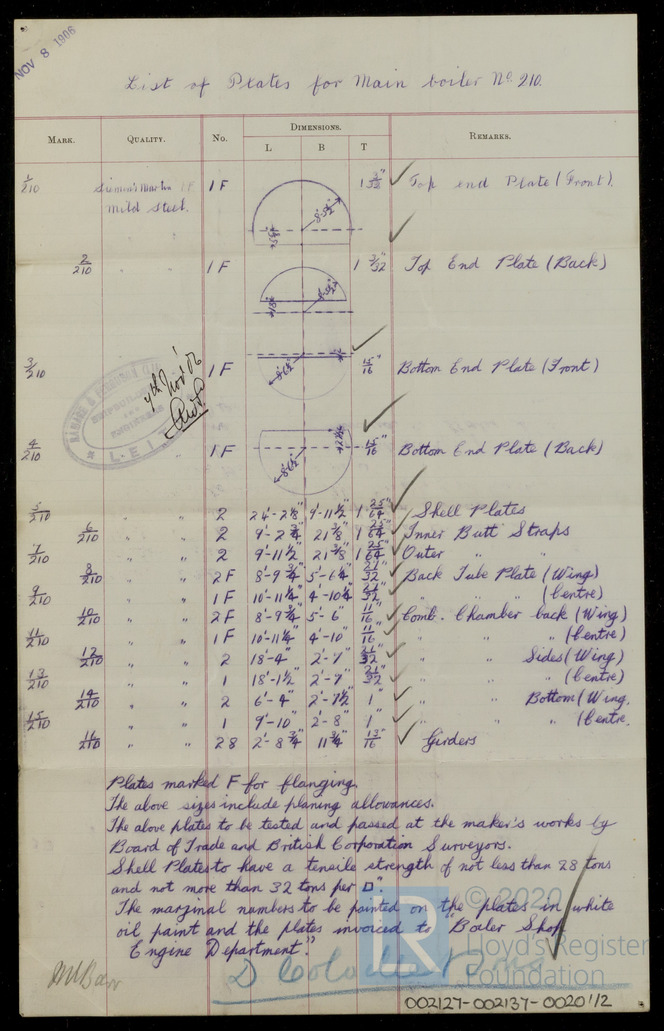 NOV 8 1906
List of Plates for Main boiler No. 210.
MARK. QUALITY. No. DIMENSIONS. REMARKS.
L B T
1/210 Siemens Martin Mild Steel. 1F 8'-5½" 1 3/32" Top end Plate (Front).
2/210 " 1F 8'-5½" 1 3/32" Top End Plate (Back)
RAMAGE & FERGUSON
LEITH
7th Nov '06
3/210 1F 8'-6½" 15/16" Bottom End Plate (Front)
4/210 " 1F 8'-6½" 15/16" Bottom End Plate (Back)
5/210 " " 2 24'-2⅛" 9'-11½" 1 25/64" Shell Plates
6/210 " " 2 9'-2¾" 21⅜" 1 25/64" Inner Butt Straps
7/210 " " 2 9'-11½" 21⅜" 1 25/64" Outer " "
8/210 " " 2F 8'-9¾" 5'-6¼" 21/32" Back Tube Plate (Wing)
9/210 " " 1F 10'-11¼" 4'-10¼" 21/32" " " " (Centre)
10/210 " " 2F 8'-9¾" 5'-6" 11/16" Comb. Chamber back (Wing)
11/210 " " 1F 10'-11¼" 4'-10" 11/16" " " " (Centre)
12/210 " " 2 18'-4" 2'-7" 21/32" " " Sides (Wing)
13/210 " " 1 18'-1½" 2'-7" 21/32" " " " (Centre)
14/210 " " 2 6'-4" 2'-7½" 1" " " Bottom (Wing.
15/210 " " 1 9'-10" 2'-8" 1" " " " (Centre.
16/210 " " 28 2'-8¾" 11¾" 13/16" Girders
Plates marked F for flanging.
The above sizes include planing allowances.
The above plates to be tested and passed at the maker's works by
Board of Trade and British Corporation Surveyors.
Shell Plates to have a tensile strength of not less than 28 tons
and not more than 32 tons per □".
The marginal numbers to be painted on the plates in white
oil paint and the plates invoiced to "Boiler Shop
Engine Department".
D Colville & Sons
© 2020
Lloyd's Register
Foundation
LR
002127-002137-0020 1/2